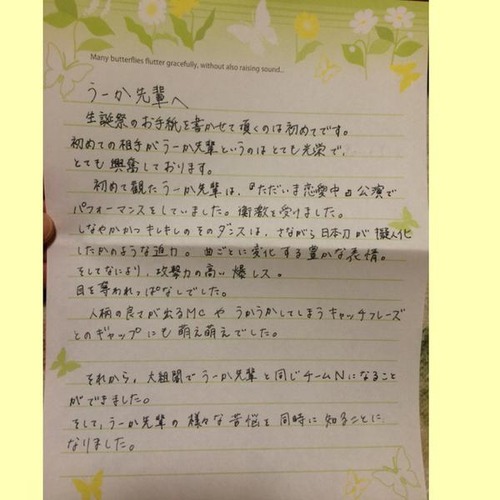 Many butterflies flutter gracefully, without also raising sound...
うーか先輩へ
生誕祭のお手紙を書かせて頂くのは初めてです。
初めての相手がうーか先輩というのはとても光栄で、
とても興奮しております。
初めて観たうーか先輩は、『ただいま恋愛中』公演で
パフォーマンスをしていました。衝撃を受けました。
しなやかかつキレキレのそのダンスは、さながら日本刀が擬人化
したかのような迫力。曲ごとに変化する豊かな表情。
そしてなにより、攻撃力の高い爆レス。
目を奪われっぱなしでした。
人柄の良さが出るMCやうかうかしてしまうキャッチフレーズ
とのギャップにも萌え萌えでした。
それから、大組閣でうーか先輩と同じチームNになること
ができました。
そして、うーか先輩の様々な苦悩を同時に知ることに
なりました。